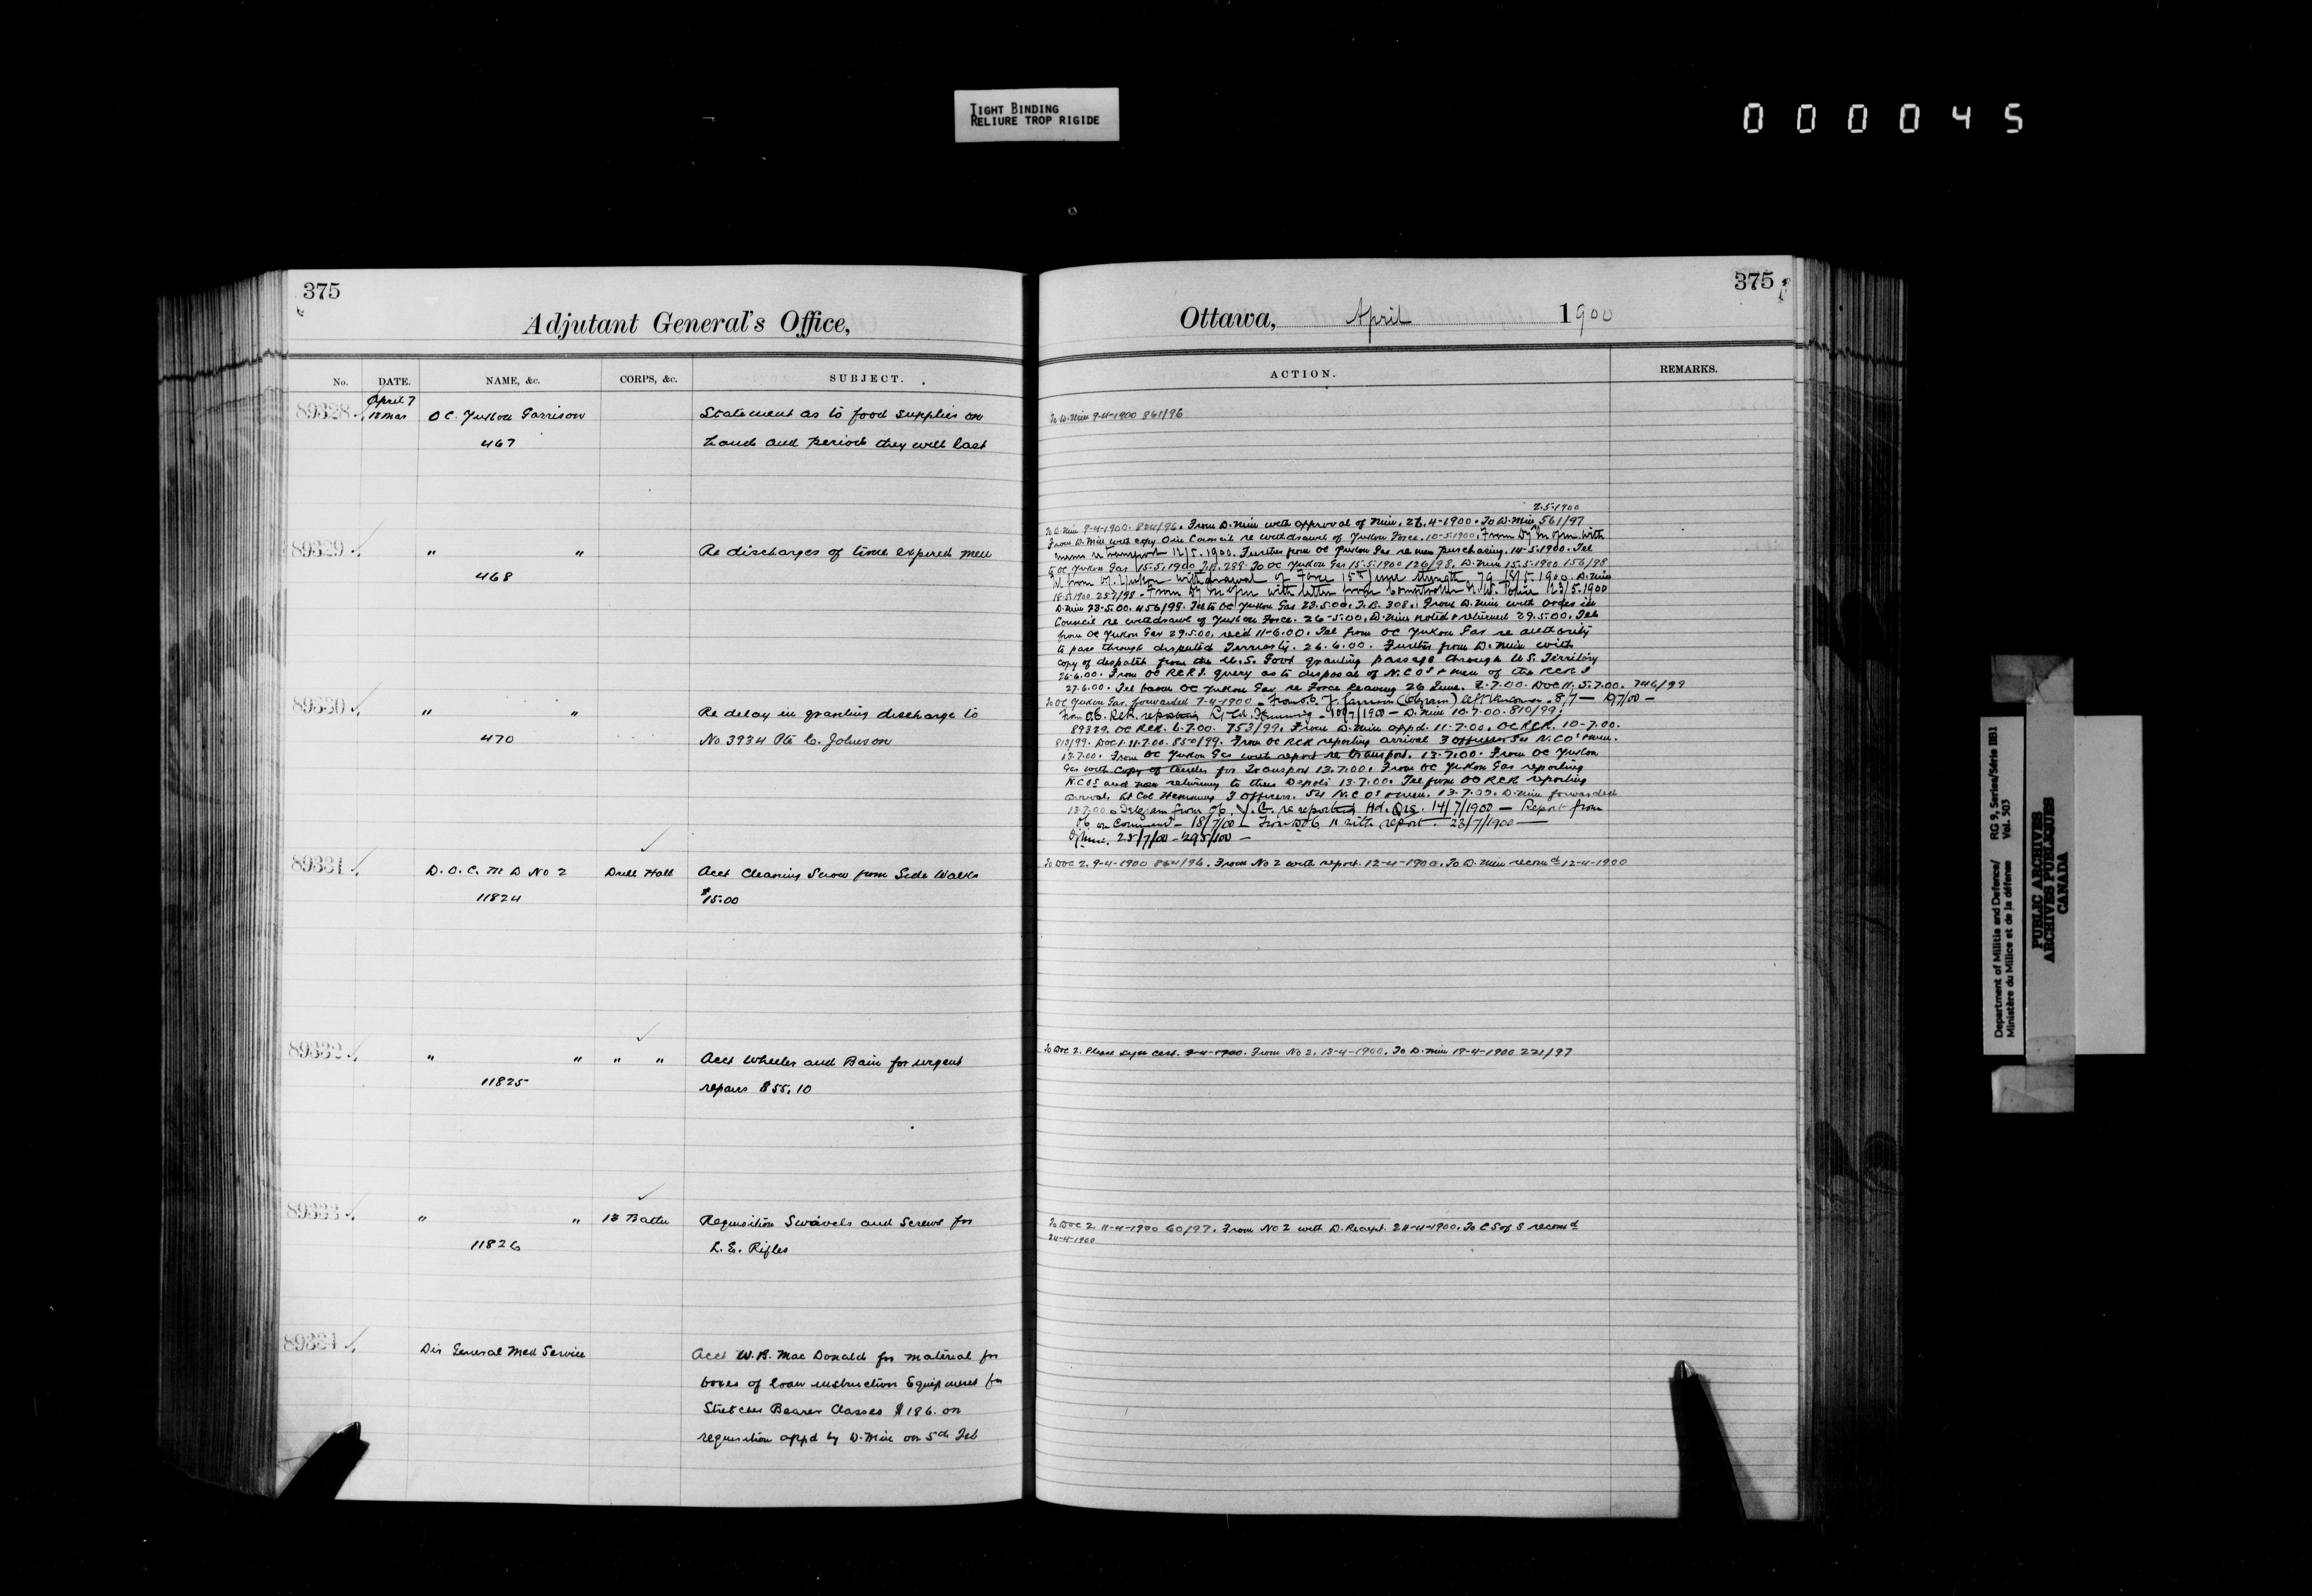 TIGHT BINDING
RELIURE TROP RIGIDE
000045
375
Adjutant General's Office,
No. DATE. NAME, &c. CORPS, &c. SUBJECT.
April 7
89328 18 Mar O C. Yukon Garrison Statement as to food supplies on
467 hand and period they will last
89329 " " Re discharges of time expired men
468
89330 " " Re delay in granting discharge to
470 No 3934 Pte C. Johnson
89331 D. O. C. M D No 2 Drill Hall Acct Cleaning Snow from Side Walks
11824 $15.00
89332 " " " " Acct Wheeler and Bain for urgent
11825 repairs $55.10
89333 " " 13 Battn Requisition Swivels and Screws for
11826 L. E. Rifles
89334 Dir General Med Service Acct W. B. Mac Donald for material for
boxes of loan instruction Equipment for
Stretcher Bearer Classes $196. on
requisition appd by D. Min on 5th Feb
375
Ottawa, April 1900
ACTION. REMARKS.
To D. Min 9-4-1900 861/96
2.5.1900
To D. Min 9-4-1900. 824/96. From D. Min with approval of Min. 26.4-1900. To D. Min 561/97
From D. Min with copy O in Council re withdrawl of Yukon Force. 10-5-1900. From with
re transport 12/5.1900. Further from OC Yukon Gar re men purchasing. 14-5-1900. Tel
to OC Yukon Gar 15.5.1900 289. To OC Yukon Gar 15.5.1900 126/98. D. Min 15.5.1900 156/98
Tel from Yukon withdrawal of Force 15th June strength 79 18/5.1900. D. Min
18.5.1900 257/98 - From with letter from Comptroller N. W. Police 23/5.1900
D. Min 23-5.00. 456/98. Tel to OC Yukon Gar 23.5.00. 308. From D. Min with Order in
Council re withdrawl of Yukon Force. 26-5.00. D. Min noted & returned 29.5.00. Tel
from OC Yukon Gar 29.5.00, recd 11-6.00. Tel from OC Yukon Gar re authority
to pass through disputed Territory. 26.6.00. Further from D. Min with
copy of despatch from the U.S. Govt granting passage through U.S. Territory
26.6.00. From OC RCRI. query as to disposal of N.C.Os & men of the RCRI
27.6.00. Tel from OC Yukon Gar re Force leaving 26 June. 2.7.00. DOC 11. 5.7.00. 746/99
To OC Yukon Gar. forwarded 7-4-1900 - From O.C. Y. Garrison (telegram) left Vancouver - 8/7 -
From O.C. RCR. reporting Lt. Col. Hemming - 10/7/1900 - D. Min 10.7.00. 810/99.
89329. OC RCR. 6-7.00. 753/99. From D. Min appd. 11-7.00. OC RCR. 10-7.00.
813/99. DOC 1. 11.7.00. 850/99. From OC RCR reporting arrival 3 officers 54 N.C.Os & men.
13.7.00. From OC Yukon Gar with report re transport. 13.7.00. From OC Yukon
Gar with copy of tender for Transport 13.7.00. From OC Yukon Gar reporting
N.C.Os and men returning to their Depots 13.7.00. Tel from OC RCR reporting
arrival Lt Col Hemming 3 Officers. 54 N.C.Os & men. 13.7.00. D. Min forwarded
13.7.00. Telegram from re reporting Hd. Qrs. 14/7/1900 - Report from
on Command - 18/7/00 - From with report. 23/7/1900 -
D/Min. 25/7/00 - 295/100 -
To DOC 2. 9-4-1900 864/96. From No 2 with report. 12-4-1900. To D. Min recomd 12-4-1900
To DOC 2. Please sign cert. 9-4-1900. From No 2. 18-4-1900. To D. Min 19-4-1900 221/97
To DOC 2 11-4-1900 60/97. From No 2 with D. Receipt 24-4-1900. To C S of S recomd
24-4-1900
Department of Militia and Defence/ RG 9, Series/Série IIB1
Ministère du Milice et de la défense Vol. 503
PUBLIC ARCHIVES
ARCHIVES PUBLIQUES
CANADA